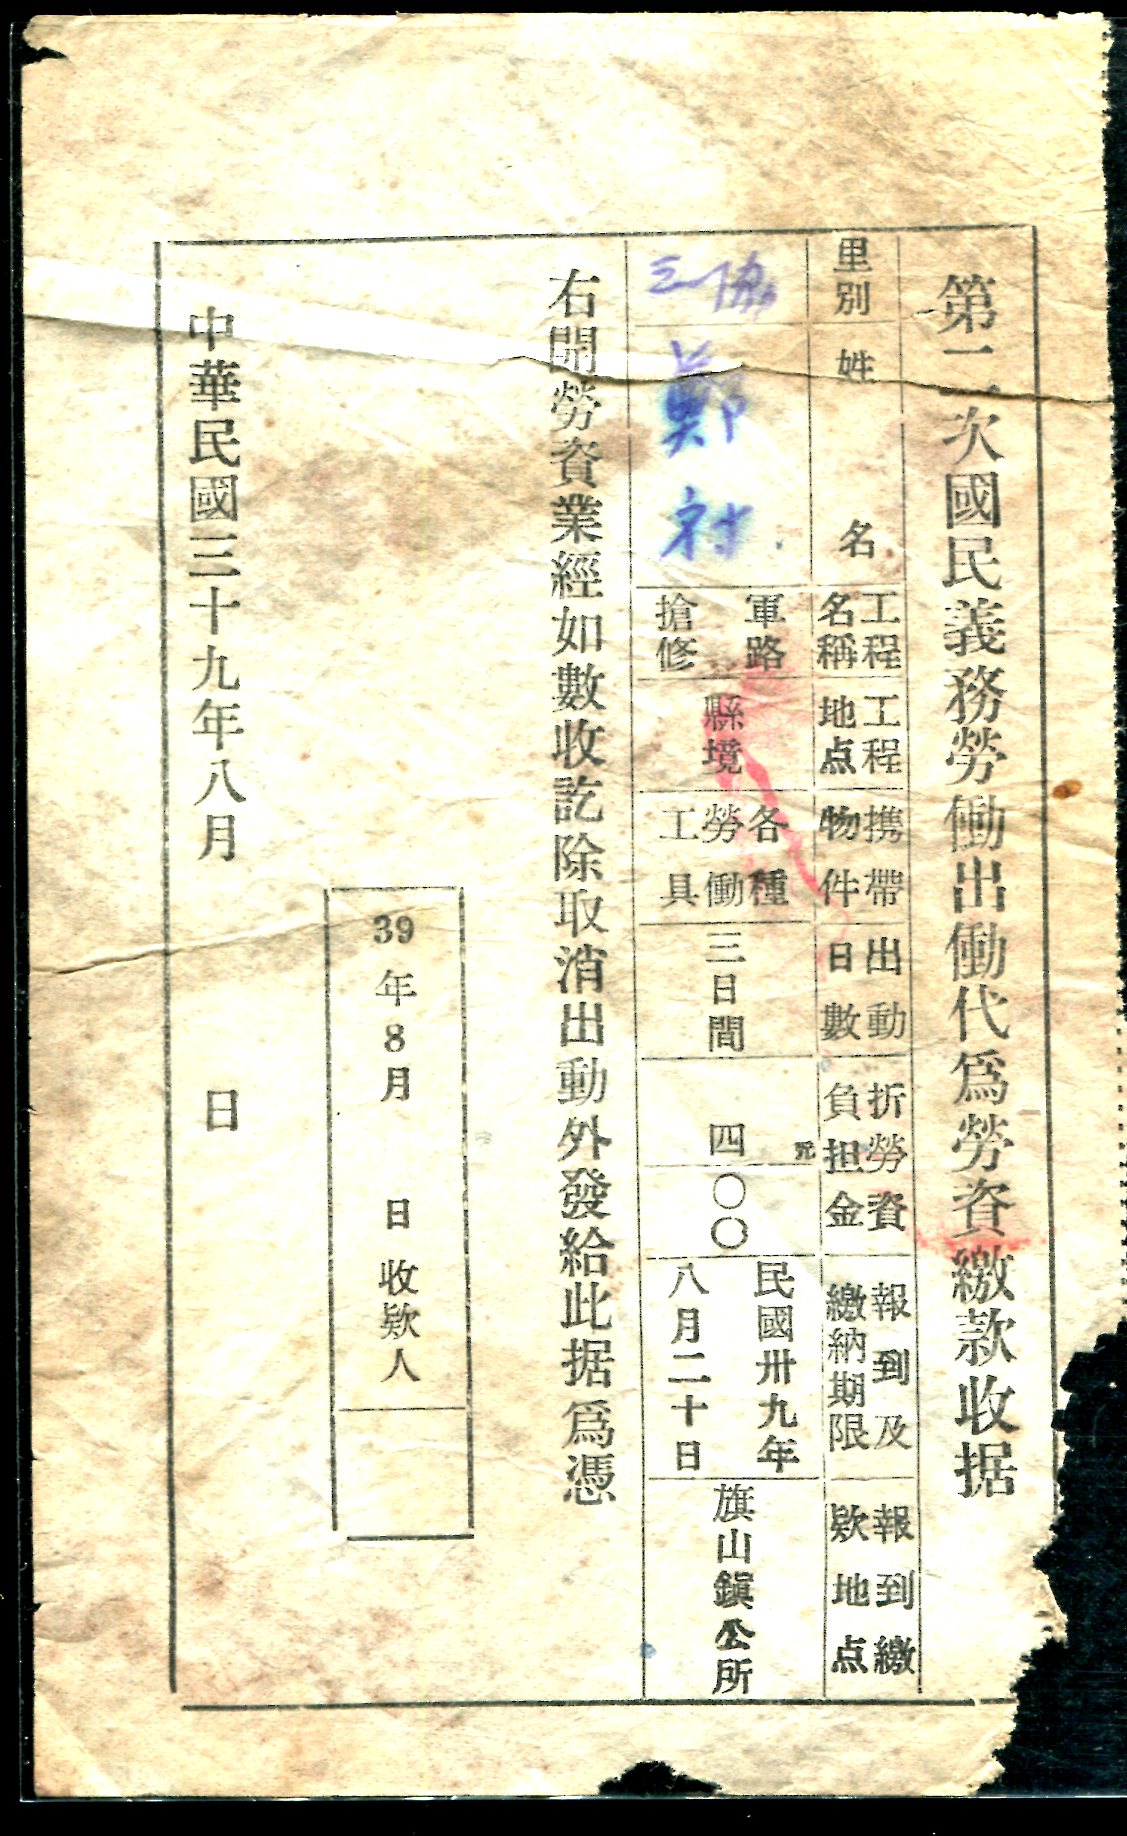 第二次國民義務勞働出働代爲勞資繳款收据
里別
姓名
工程
名稱
工程
地点
携帶
物件
出動
日數
折勞資
負担金
報到及
繳納期限
報到繳
欵地点
三協
鄭
軍路
搶修
縣境
各種
勞働
工具
三日間
元
四〇〇
民國卅九年
八月二十日
旗山鎭公所
右開勞資業經如數收訖除取消出動外發給此据爲憑
39年8月 日收欵人
中華民國三十九年八月 日